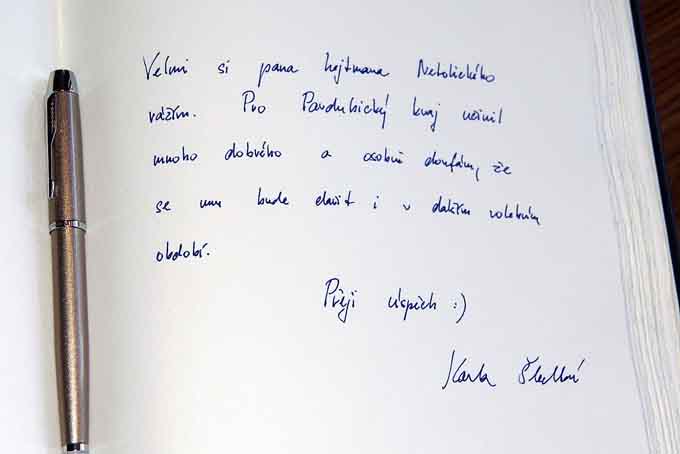 Velmi si pana hejtmana Netolického
vážím. Pro Pardubický kraj učinil
mnoho dobrého a osobně doufám, že
se mu bude dařit i v dalším volebním
období.
Přeji úspěch :)
Karla